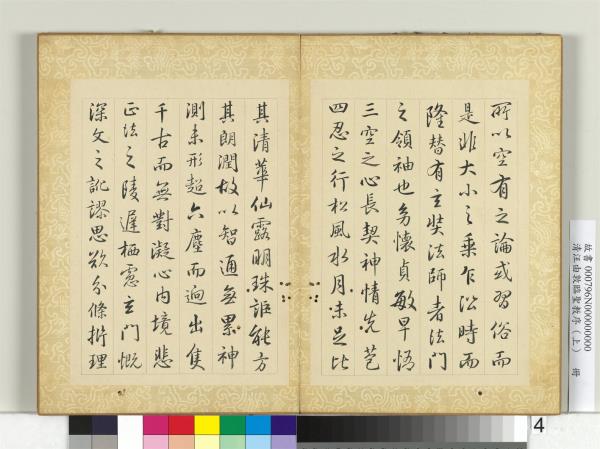 所以空有之論或習俗而
是非大小之乘乍沿時而
隆替有玄奘法師者法門
之領袖也幼懷貞敏早悟
三空之心長契神情先苞
四忍之行松風水月未足比
其清華仙露明珠詎能方
其朗潤故以智通無累神
測未形超六塵而迥出隻
千古而無對凝心內境悲
正法之陵遲栖慮玄門慨
深文之訛謬思欲分條析理
故書 000796N000000000
清汪由敦臨聖教序(上) 冊
4